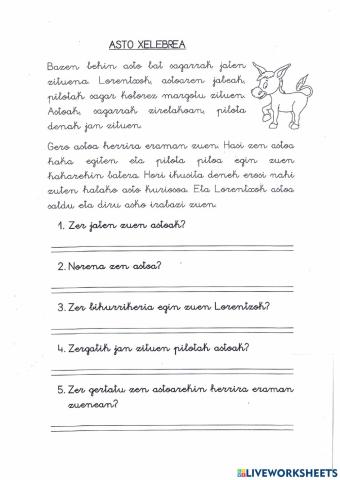 ASTO XELEBREA
Bazen behin asto bat sagarrak jaten
zituena. Lorentxok, astoaren jabeak,
pilotak sagar kolorez margotu zituen.
Astoak, sagarrak zirelakoan, pilota
denak jan zituen.
Gero astoa herrira eraman zuen. Hasi zen astoa
kaka egiten eta pilota piloa egin zuen
kakarekin batera. Hori ikusita denek erosi nahi
zuten halako asto kuriosoa. Eta Lorentxok astoa
saldu eta diru asko irabazi zuen.
1. Zer jaten zuen astoak?
2. Norena zen astoa?
3. Zer bihurrikeria egin zuen Lorentxok?
4. Zergatik jan zituen pilotak astoak?
5. Zer gertatu zen astoarekin herrira eraman
zuenean?
LIVEWORKSHEETS